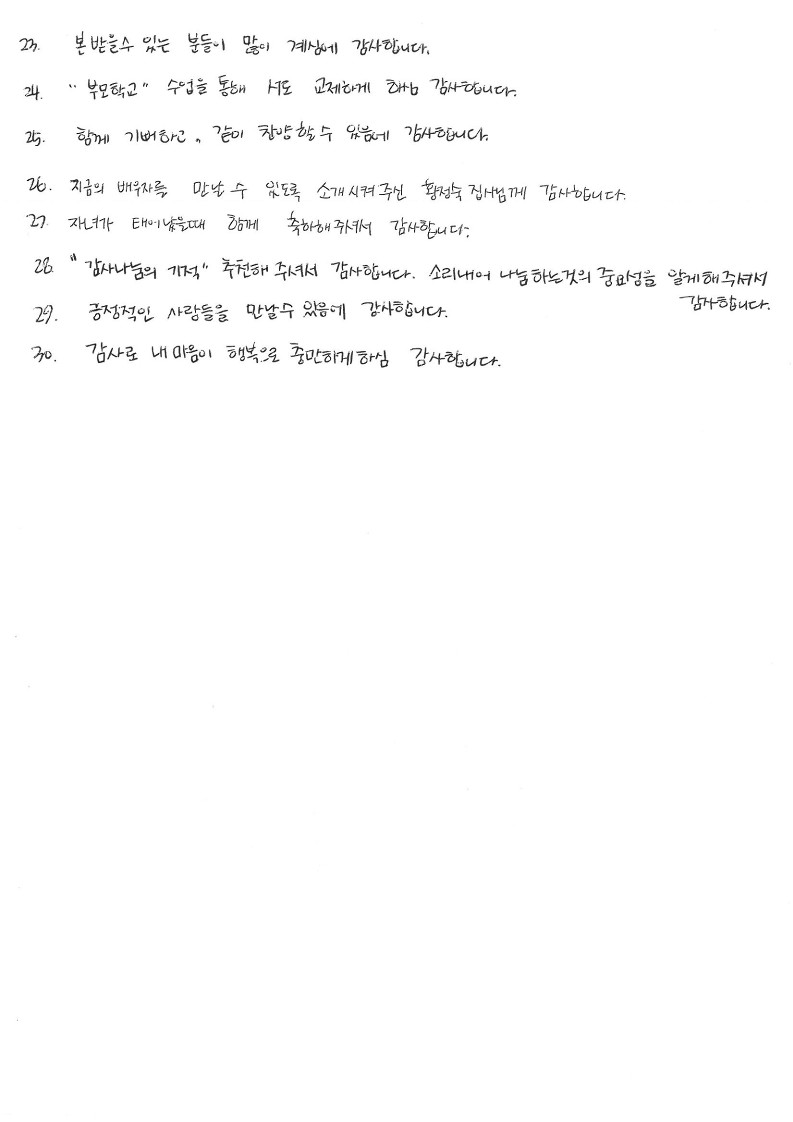 23. 본받을수 있는 분들이 많이 계심에 감사합니다.
24. "부모학교" 수업을 통해 서로 교제하게 하심 감사합니다.
25. 함께 기뻐하고, 같이 찬양할수 있음에 감사합니다.
26. 지금의 배우자를 만날 수 있도록 소개시켜주신 황정숙 집사님께 감사합니다.
27. 자녀가 태어났을때 함께 축하해주셔서 감사합니다.
28. "감사나눔의 기적" 추천해 주셔서 감사합니다. 소리내어 나눔하는것의 중요성을 알게해주셔서
감사합니다.
29. 긍정적인 사람들을 만날수 있음에 감사합니다.
30. 감사로 내 마음이 행복으로 충만하게하심 감사합니다.